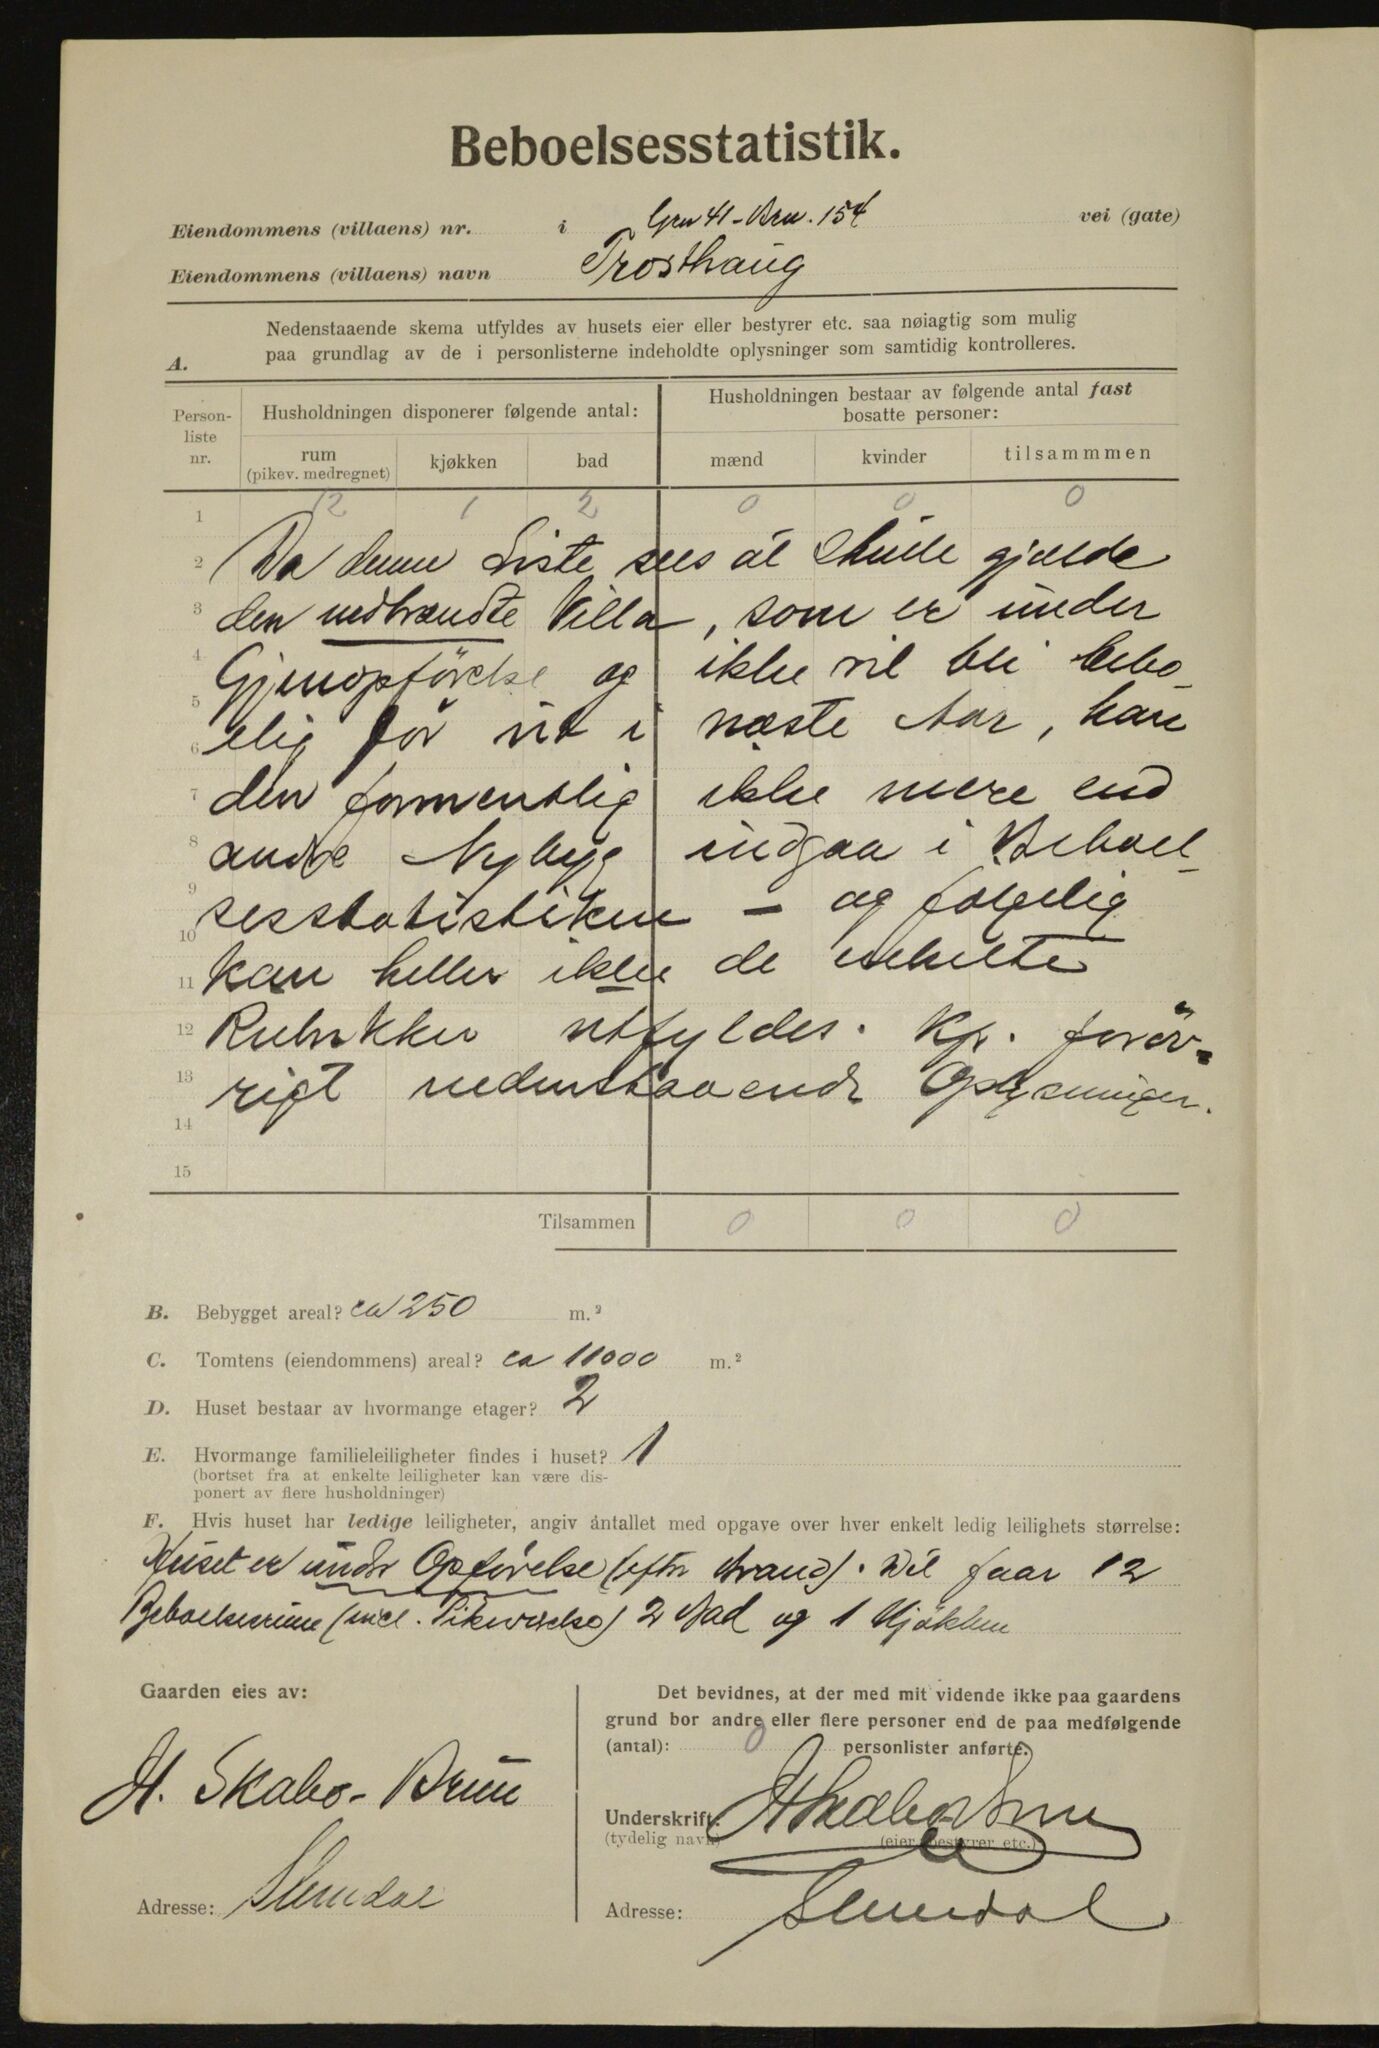 Beboelsesstatistik.
Eiendommens (villaens) nr. i Grn 41 - Brn. 154 vei (gate)
Eiendommens (villaens) navn Trosthaug
Nedenstaaende skema utfyldes av husets eier eller bestyrer etc. saa nøiagtig som mulig
A. paa grundlag av de i personlisterne indeholdte oplysninger som samtidig kontrolleres.
Person-
liste
nr.
Husholdningen disponerer følgende antal:
Husholdningen bestaar av følgende antal fast
bosatte personer:
rum
(pikev. medregnet)
kjøkken
bad
mænd
kvinder
tilsammmen
1 12 1 2 0 0 0
2 Da denne Liste sees at skulle gjælde
3 den nedbrændte Villa, som er under
4 Gjenopförelse og ikke vil bli bebo-
5
6 elig för ut i næste Aar, kan
7 den formentlig ikke mere end
8 andre Nybyg indgaa i Beboel-
9
10 sesstatistiken - og følgelig
11 kan heller ikke de enkelte
12 Rubrikker utfyldes. Kfr. foröv-
13 rigt nedenstaaende Oplysninger.
14
15
Tilsammen 0 0 0
B. Bebygget areal? ca 250 m.²
C. Tomtens (eiendommens) areal? ca 11000 m.²
D. Huset bestaar av hvormange etager? 2
E. Hvormange familieleiligheter findes i huset? 1
(bortset fra at enkelte leiligheter kan være dis-
ponert av flere husholdninger)
F. Hvis huset har ledige leiligheter, angiv antallet med opgave over hver enkelt ledig leilighets størrelse:
Huset er under Opförelse (efter Brand). Vil faar 12
Beboelsesrum (incl. Pikeværelse) 2 Bad og 1 Kjökken
Gaarden eies av:
H. Skabo-Brun
Adresse: Slemdal
Det bevidnes, at der med mit vidende ikke paa gaardens
grund bor andre eller flere personer end de paa medfølgende
(antal): 0 personlister anførte.
Underskrift: H Skabo Brun
(tydelig navn) (eier, bestyrer etc.)
Adresse: Slemdal